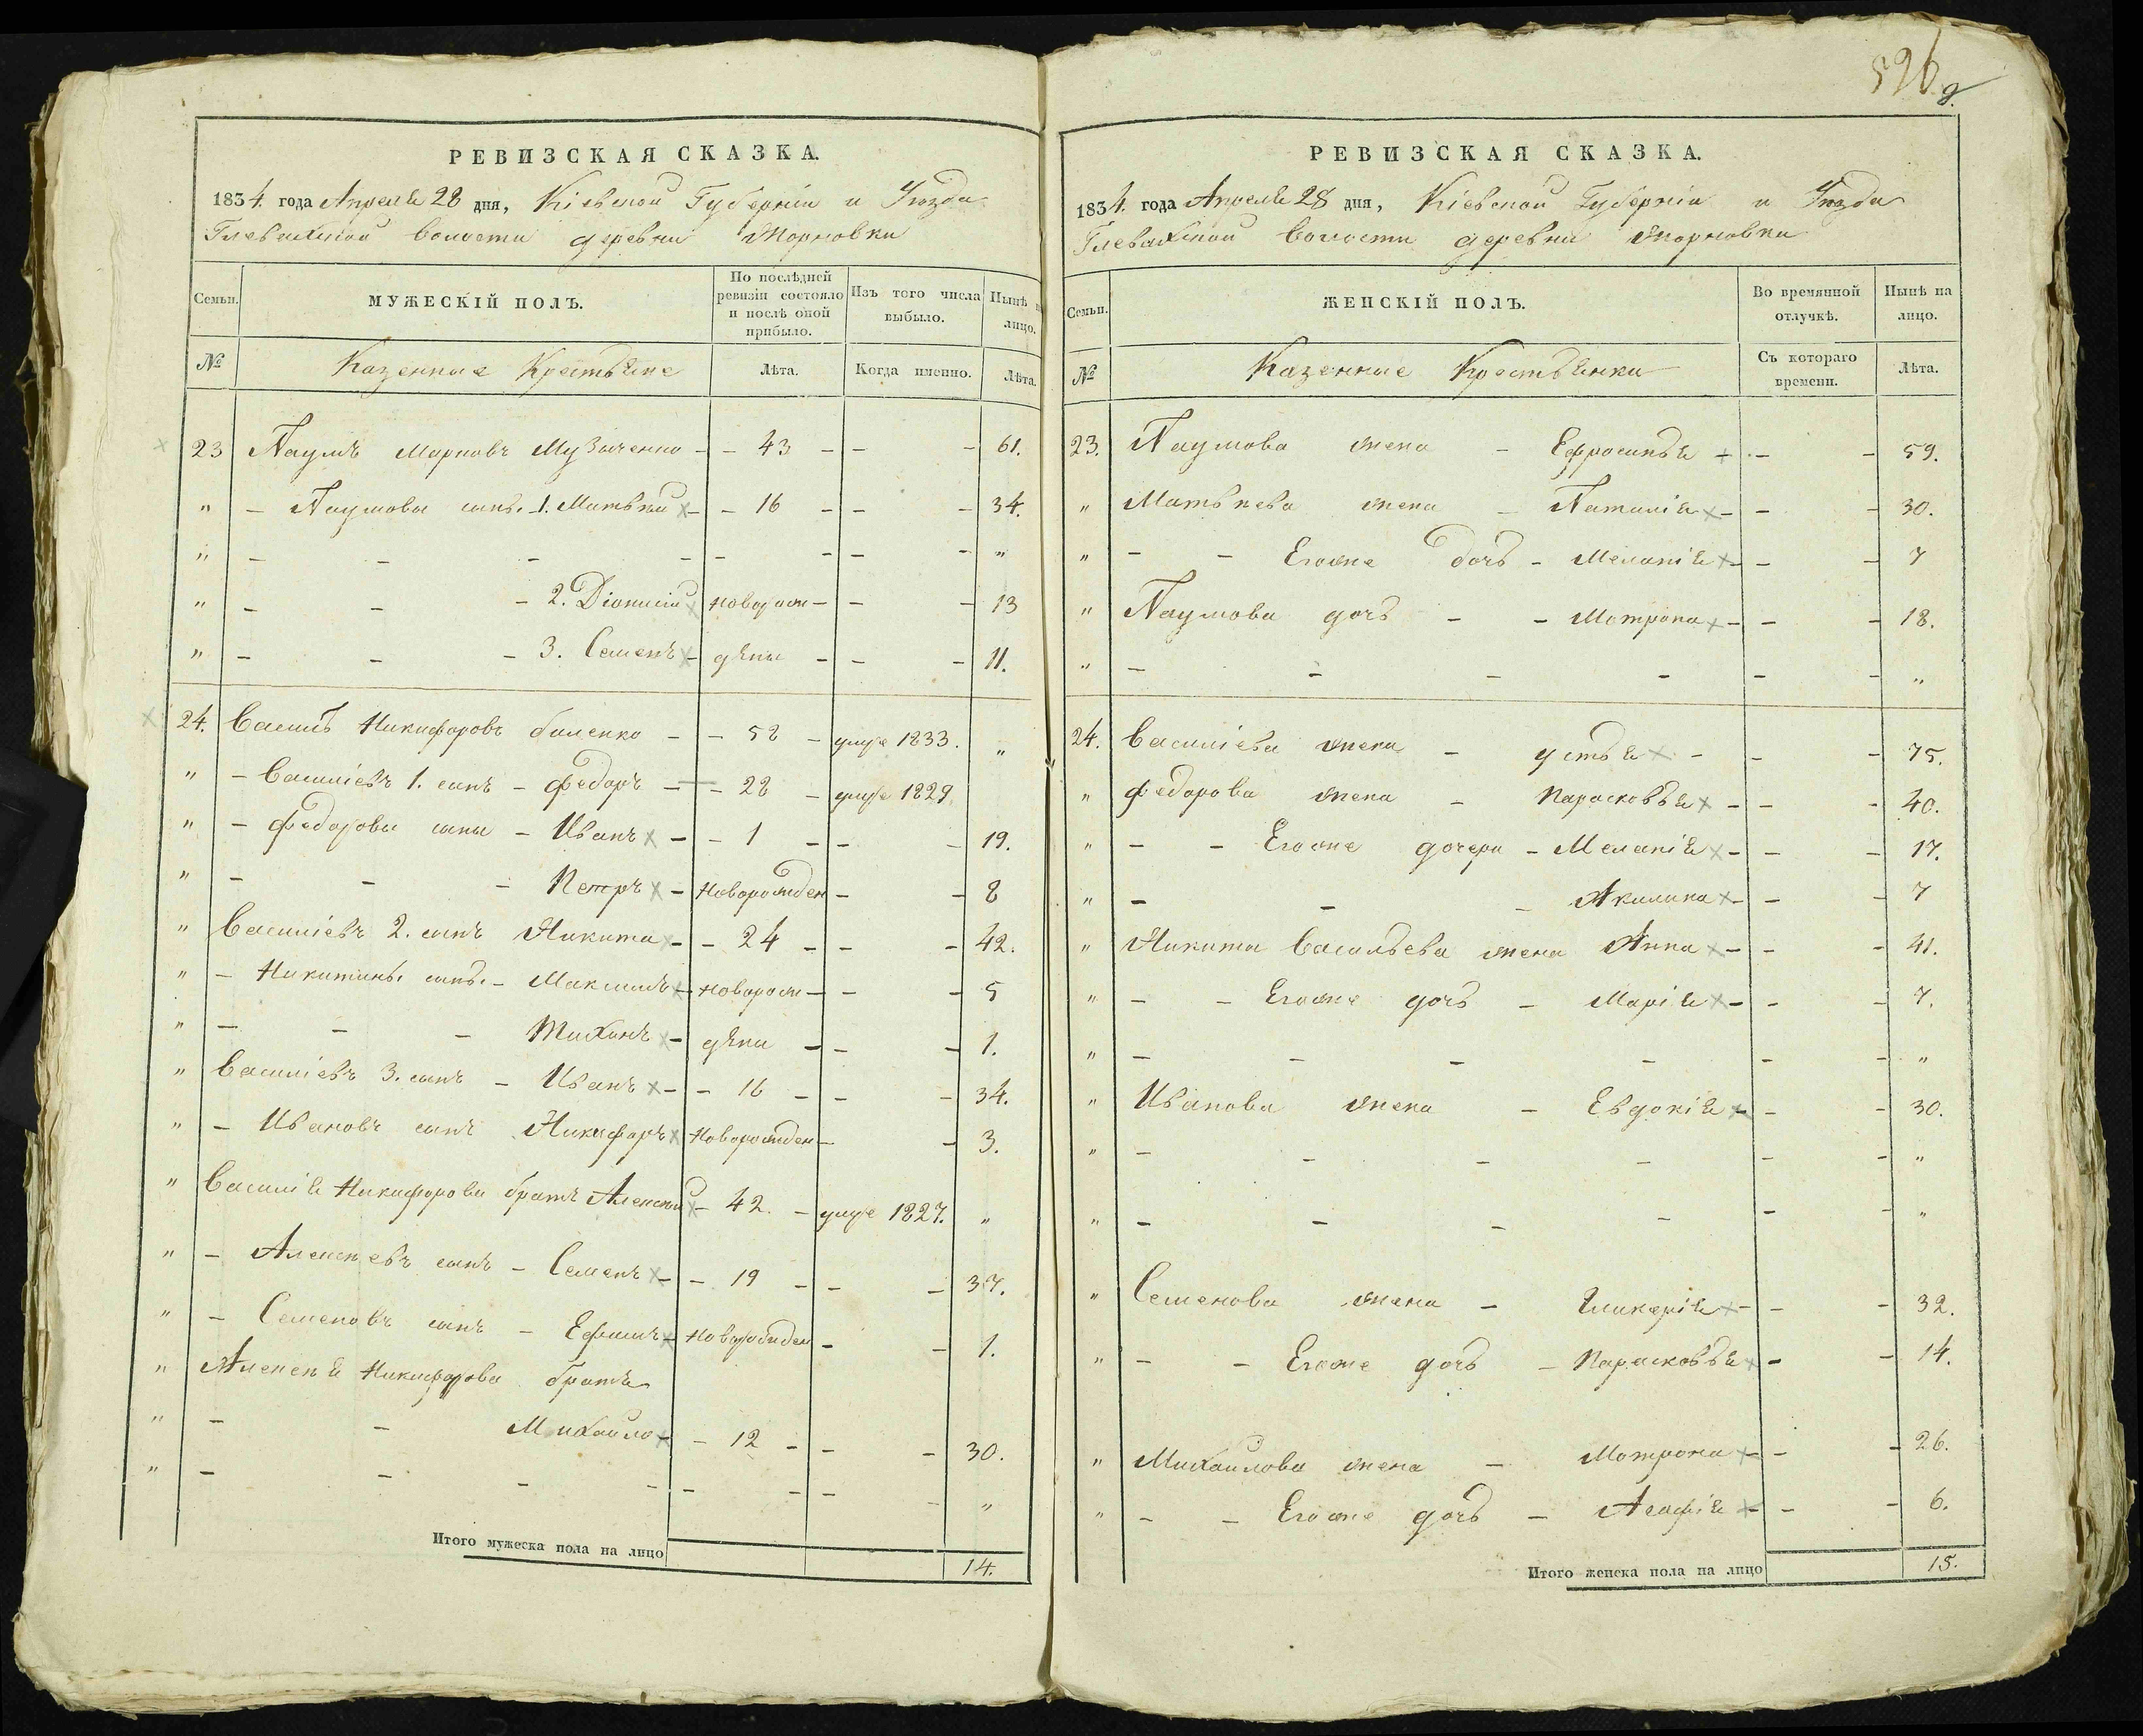 526
РЕВИЗСКАЯ СКАЗКА.
1834. года Апреля 28 дня, Кіевской Губерніи и Уѣзда
Глевахской Волости деревни Жорновки
Семьи. МУЖЕСКІЙ ПОЛЪ. По послѣдней ревизіи состояло и послѣ оной прибыло. Изъ того числа выбыло. Нынѣ на лицо.
№ Казенные Крестьяне Лѣта. Когда именно. Лѣта.
23 Наумъ Марковъ Музыченко - - 43 - - - 61.
" - Наумовы сын. 1. Матвѣй - - 16 - - - 34.
" - - - - - - - - "
" - - - 2. Діонисій новорож - - - 13
" - - - 3. Семенъ - дены - - - 11.
24. Василій Никифоровъ - - 52 - умре 1833. "
" - Василіевъ 1. сынъ - Федоръ - - 22 - умре 1829.
" - Федоровы сыны - Иванъ - - 1 - - - 19.
" - - - Петръ - Новорожден - - 8
" Василіевъ 2. сынъ Никита - - 24 - - - 42.
" - Никитины сын. - Максимъ - новорож - - - 5
" - - - Тихонъ - дены - - - 1.
" Василіевъ 3. сынъ - Иванъ - - 16 - - - 34.
" - Ивановъ сынъ Никифоръ Новорожден - - 3.
" Василія Никифорова братъ Алексѣй - 42. - умре 1827. "
" - Алексѣевъ сынъ - Семенъ - - 19 - - - 37.
" - Семеновъ сынъ - Ефимъ - Новорожден - - 1.
" Алексѣя Никифорова братъ
" - - Михайло - - 12 - - - 30.
" - - - - - - - - "
Итого мужеска пола на лицо 14.
РЕВИЗСКАЯ СКАЗКА.
1834. года Апреля 28 дня, Кіевской Губерніи и Уѣзда
Глевахской Волости деревни Жорновки
Семьи. ЖЕНСКІЙ ПОЛЪ. Во времянной отлучкѣ. Нынѣ на лицо.
№ Казенные Крестьянки Съ котораго времени. Лѣта.
23. Наумова жена - Ефросинья - - - 59.
" Матвѣева жена - Наталія - - - 30.
" - - Егоже дочь - Меланія - - - 7
" Наумова дочь - - Мотрона - - - 18.
" - - - - - - "
24. Василіева жена - Устья - - - 75.
" Федорова жена - Парасковья - - - 40.
" - - Егоже дочери - Меланія - - - 17.
" - - - Акилина - - - 7
" Никита Васильева жена Анна - - - 41.
" - - Егоже дочь - Марія - - - 7.
" - - - - - - "
" Иванова жена - Евдокія - - - 30.
" - - - - - - "
" - - - - - - "
" Семенова жена - Гликерія - - - 32.
" - - Егоже дочь - Парасковья - - 14.
" Михаилова жена - Мотрона - - - 26.
" - - Егоже дочь - Агафія - - - 6.
Итого женска пола на лицо 15.